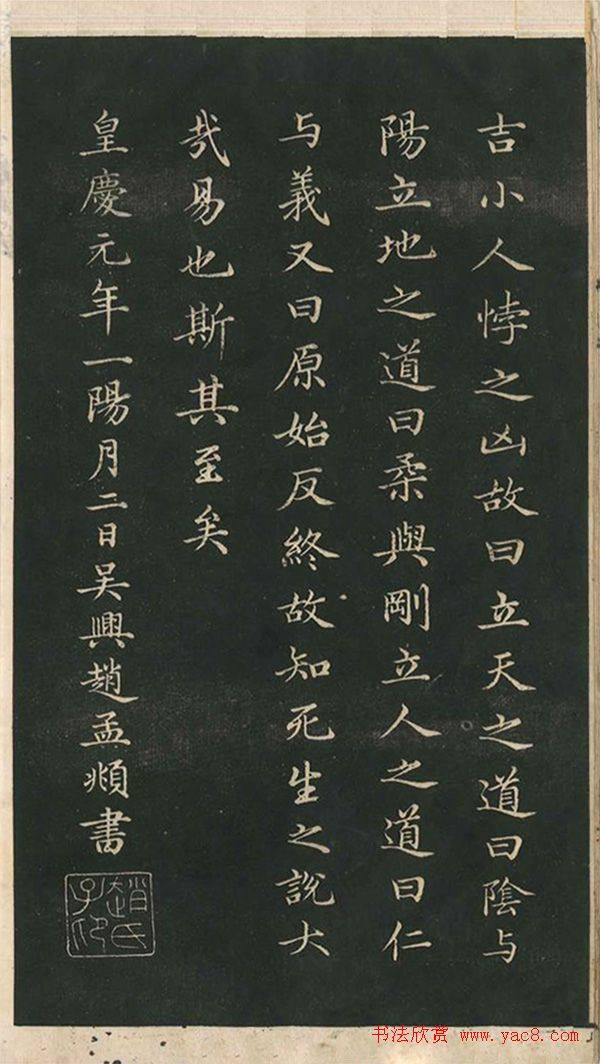 吉小人悖之凶故曰立天之道曰陰与
陽立地之道曰柔與剛立人之道曰仁
与義又曰原始反終故知死生之說大
㢤易也斯其至矣
皇慶元年一陽月二日吳興趙孟頫書
趙氏子昂
书法欣赏 www.yac8.com